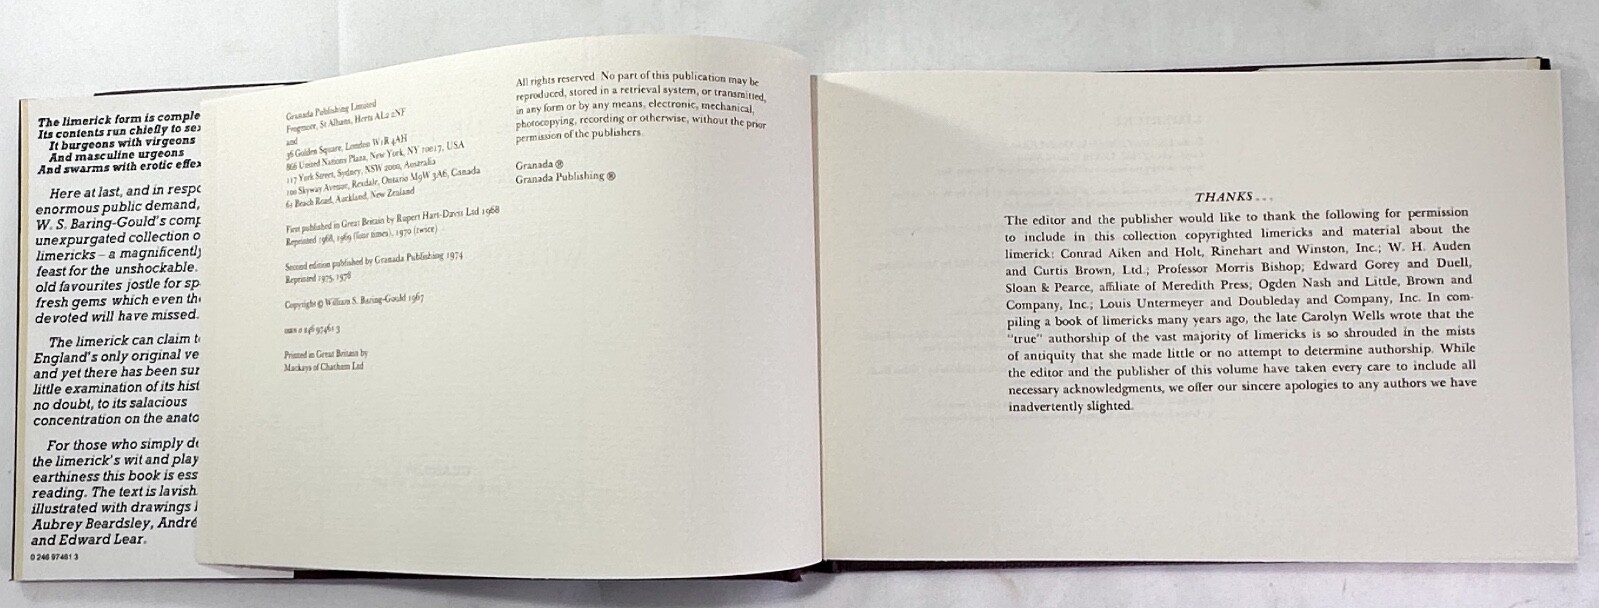 The limerick form is comple
Its contents run chiefly to sex
It burgeons with virgeons
And masculine urgeons
And swarms with erotic effex
Here at last, and in respo
enormous public demand,
W. S. Baring-Gould's comp
unexpurgated collection o
limericks – a magnificently
feast for the unshockable.
old favourites jostle for sp
fresh gems which even the
devoted will have missed.
The limerick can claim to
England's only original ve
and yet there has been sur
little examination of its hist
no doubt, to its salacious
concentration on the anato
For those who simply de
the limerick's wit and play
earthiness this book is ess
reading. The text is lavish
illustrated with drawings
Aubrey Beardsley, André
and Edward Lear.
0 246 97461 3
Granada Publishing Limited
Frogmore, St Albans, Herts AL2 2NF
and
36 Golden Square, London W1R 4AH
866 United Nations Plaza, New York, NY 10017, USA
117 York Street, Sydney, NSW 2000, Australia
100 Skyway Avenue, Rexdale, Ontario M9W 3A6, Canada
61 Beach Road, Auckland, New Zealand
First published in Great Britain by Rupert Hart-Davis Ltd 1968
Reprinted 1968, 1969 (four times), 1970 (twice)
Second edition published by Granada Publishing 1974
Reprinted 1975, 1978
Copyright © William S. Baring-Gould 1967
ISBN 0 246 97461 3
Printed in Great Britain by
Mackays of Chatham Ltd
All rights reserved. No part of this publication may be
reproduced, stored in a retrieval system, or transmitted,
in any form or by any means, electronic, mechanical,
photocopying, recording or otherwise, without the prior
permission of the publishers.
Granada ®
Granada Publishing ®
THANKS...
The editor and the publisher would like to thank the following for permission
to include in this collection copyrighted limericks and material about the
limerick: Conrad Aiken and Holt, Rinehart and Winston, Inc.; W. H. Auden
and Curtis Brown, Ltd.; Professor Morris Bishop; Edward Gorey and Duell,
Sloan & Pearce, affiliate of Meredith Press; Ogden Nash and Little, Brown and
Company, Inc.; Louis Untermeyer and Doubleday and Company, Inc. In com-
piling a book of limericks many years ago, the late Carolyn Wells wrote that the
"true" authorship of the vast majority of limericks is so shrouded in the mists
of antiquity that she made little or no attempt to determine authorship. While
the editor and the publisher of this volume have taken every care to include all
necessary acknowledgments, we offer our sincere apologies to any authors we have
inadvertently slighted.